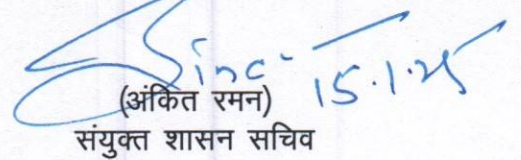 15.1.25
(अंकित रमन)
संयुक्त शासन सचिव